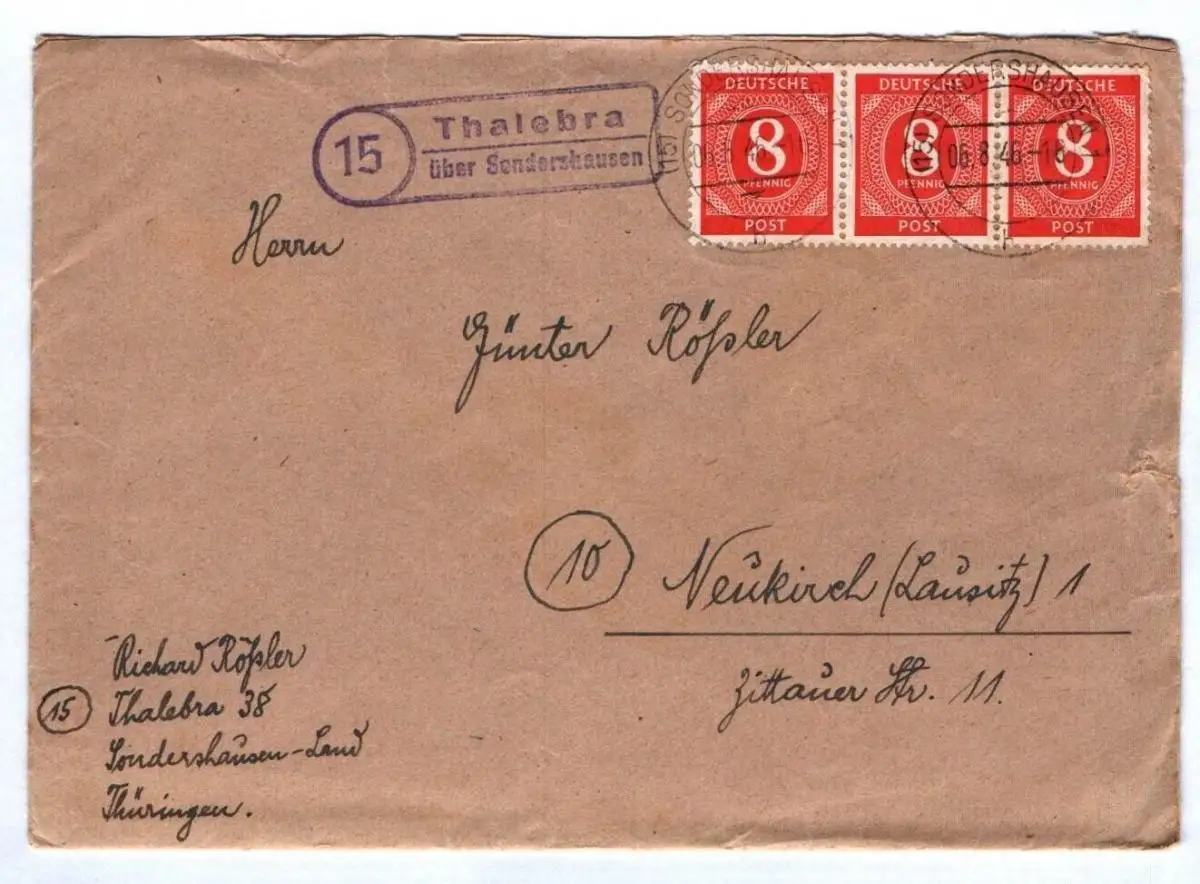 15 Thalebra
über Sondershausen
DEUTSCHE DEUTSCHE DEUTSCHE
8 8 8
PFENNIG PFENNIG PFENNIG
POST POST POST
(15) SONDERSHAUSEN
(15) SONDERSHAUSEN
06.8.46-18
Herrn
Günter Rößler
10 Neukirch (Lausitz) 1
Zittauer Str. 11.
Richard Rößler
15 Thalebra 38
Sondershausen-Land
Thüringen.